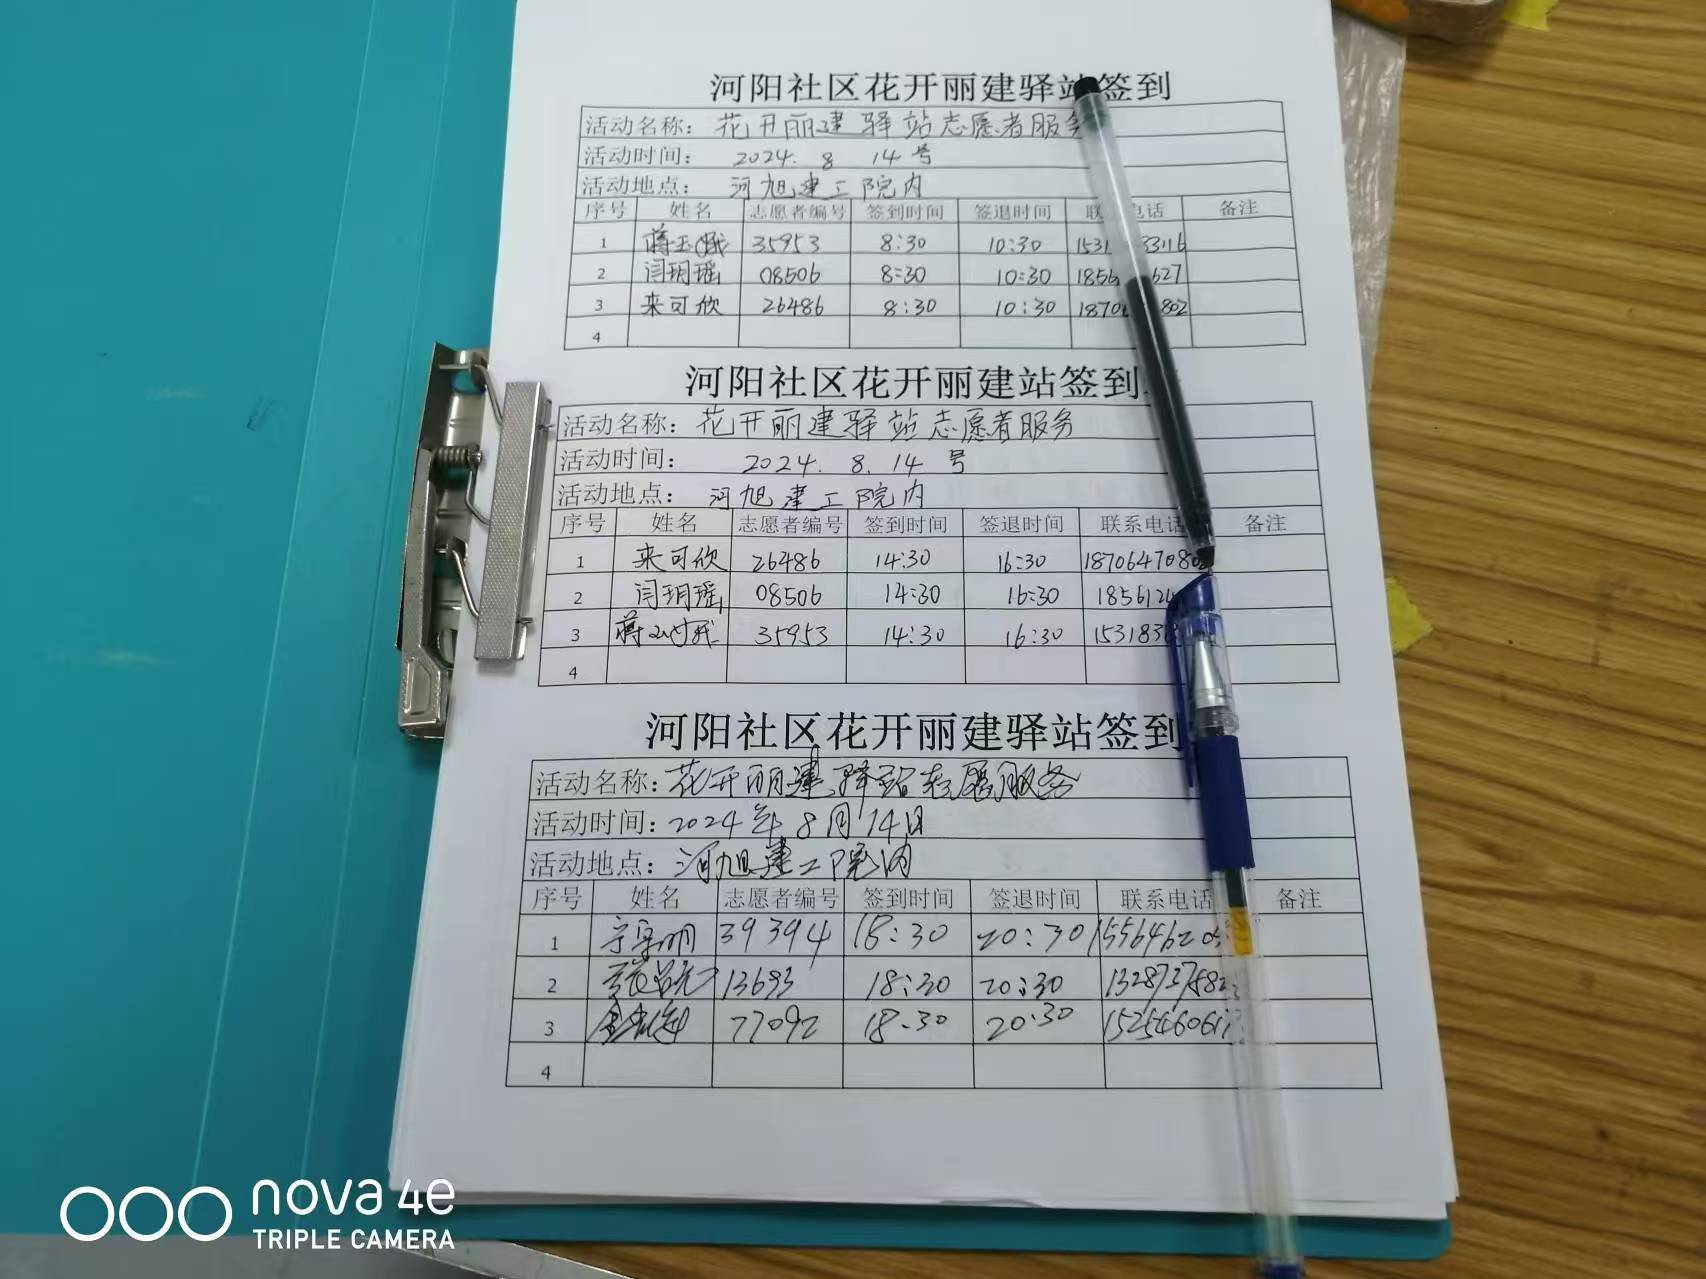 河阳社区花开丽建驿站签到
活动名称： 花开丽建驿站志愿者服务
活动时间： 2024. 8 14号
活动地点： 河旭建工院内
序号 姓名 志愿者编号 签到时间 签退时间 联 电话 备注
1 蒋玉 35953 8:30 10:30
2 闫玥瑶 08506 8:30 10:30
3 来可欣 26486 8:30 10:30
4
河阳社区花开丽建站签到
活动名称： 花开丽建驿站志愿者服务
活动时间： 2024. 8. 14 号
活动地点： 河旭建工院内
序号 姓名 志愿者编号 签到时间 签退时间 联系电话 备注
1 来可欣 26486 14:30 16:30 1870647080
2 闫玥瑶 08506 14:30 16:30
3 35953 14:30 16:30
4
河阳社区花开丽建驿站签到
活动名称：花开丽建驿站志愿服务
活动时间：2024年8月14日
活动地点：河旭建工院内
序号 姓名 志愿者编号 签到时间 签退时间 联系电话 备注
1 39394 18:30 20:30
2 13693 18:30 20:30
3 77092 18:30 20:30
4
nova 4e
TRIPLE CAMERA